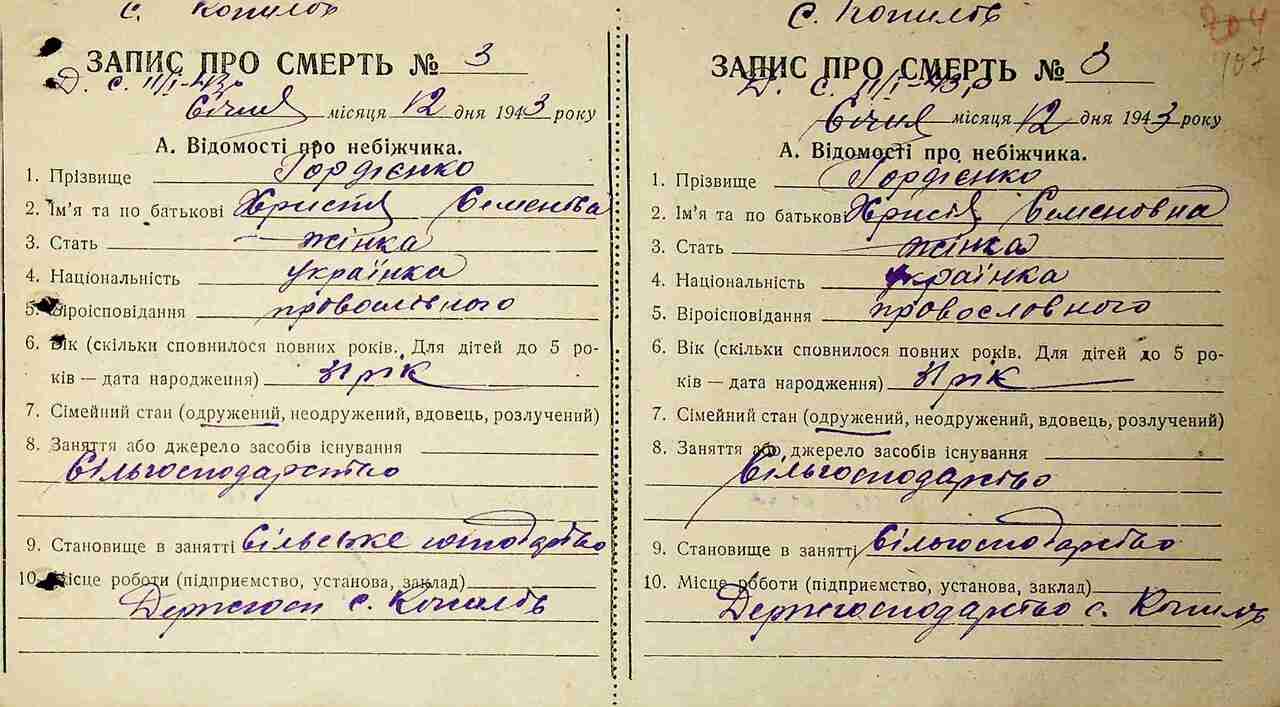 с. Копилов
ЗАПИС ПРО СМЕРТЬ № 3
Д. С. 11/I-43р
Січня місяця 12 дня 1943 року
А. Відомості про небіжчика.
1. Прізвище Гордієнко
2. Ім'я та по батькові Христя Семенова
3. Стать жінка
4. Національність українка
5. Віроісповідання провославного
6. Вік (скільки сповнилося повних років. Для дітей до 5 ро-
ків — дата народження) 31 рік
7. Сімейний стан (одружений, неодружений, вдовець, розлучений)
8. Заняття або джерело засобів існування
Сільгосподарство
9. Становище в занятті Сільське господарство
10. Місце роботи (підприємство, установа, заклад)
Держгосп с. Копилов
с. Копилов
204
107
ЗАПИС ПРО СМЕРТЬ № 3
Д. С. 11/I-43р
Січня місяця 12 дня 1943 року
А. Відомості про небіжчика.
1. Прізвище Гордієнко
2. Ім'я та по батькові Христя Семеновна
3. Стать жінка
4. Національність українка
5. Віроісповідання провославного
6. Вік (скільки сповнилося повних років. Для дітей до 5 ро-
ків — дата народження) 31 рік
7. Сімейний стан (одружений, неодружений, вдовець, розлучений)
8. Заняття або джерело засобів існування
Сільгосподарство
9. Становище в занятті Сільгосподарство
10. Місце роботи (підприємство, установа, заклад)
Держгосподарство с. Копилов